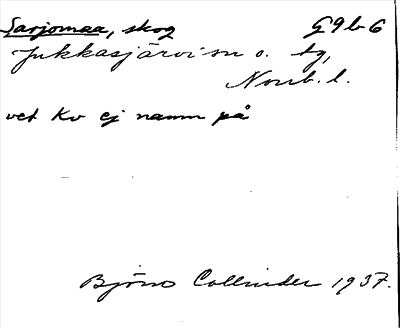 Sarjomaa, skog G9b6
Jukkasjärvi sn o. tg,
Norrb. l.
vet Kv ej namn på
Björn Collinder 1937.